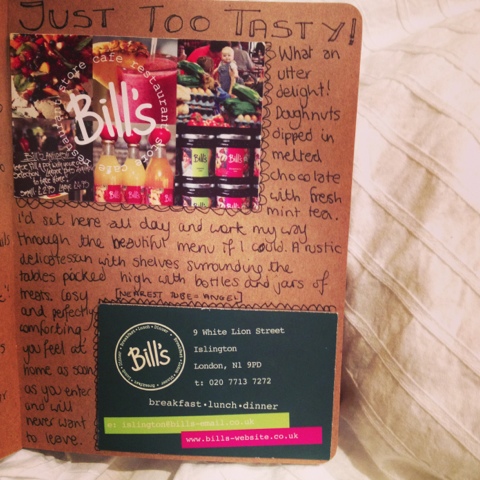 JUST TOO TASTY!
store cafe restaurant store cafe restaurant
Bill's
Bill's
Bill's
What an
utter
delight!
Doughnuts
dipped in
melted
chocolate
with fresh
mint tea.
I'd sit here all day and work my way
through the beautiful menu if I could. A rustic
delicatessen with shelves surrounding the
tables packed high with bottles and jars of
treats. Cosy
[NEAREST TUBE: ANGEL]
and perfectly
comforting
you feel at
home as soon
as you enter
and will
never want
to leave.
Bill's
9 White Lion Street
Islington
London, N1 9PD
t: 020 7713 7272
breakfast•lunch•dinner
e: islington@bills-email.co.uk
www.bills-website.co.uk